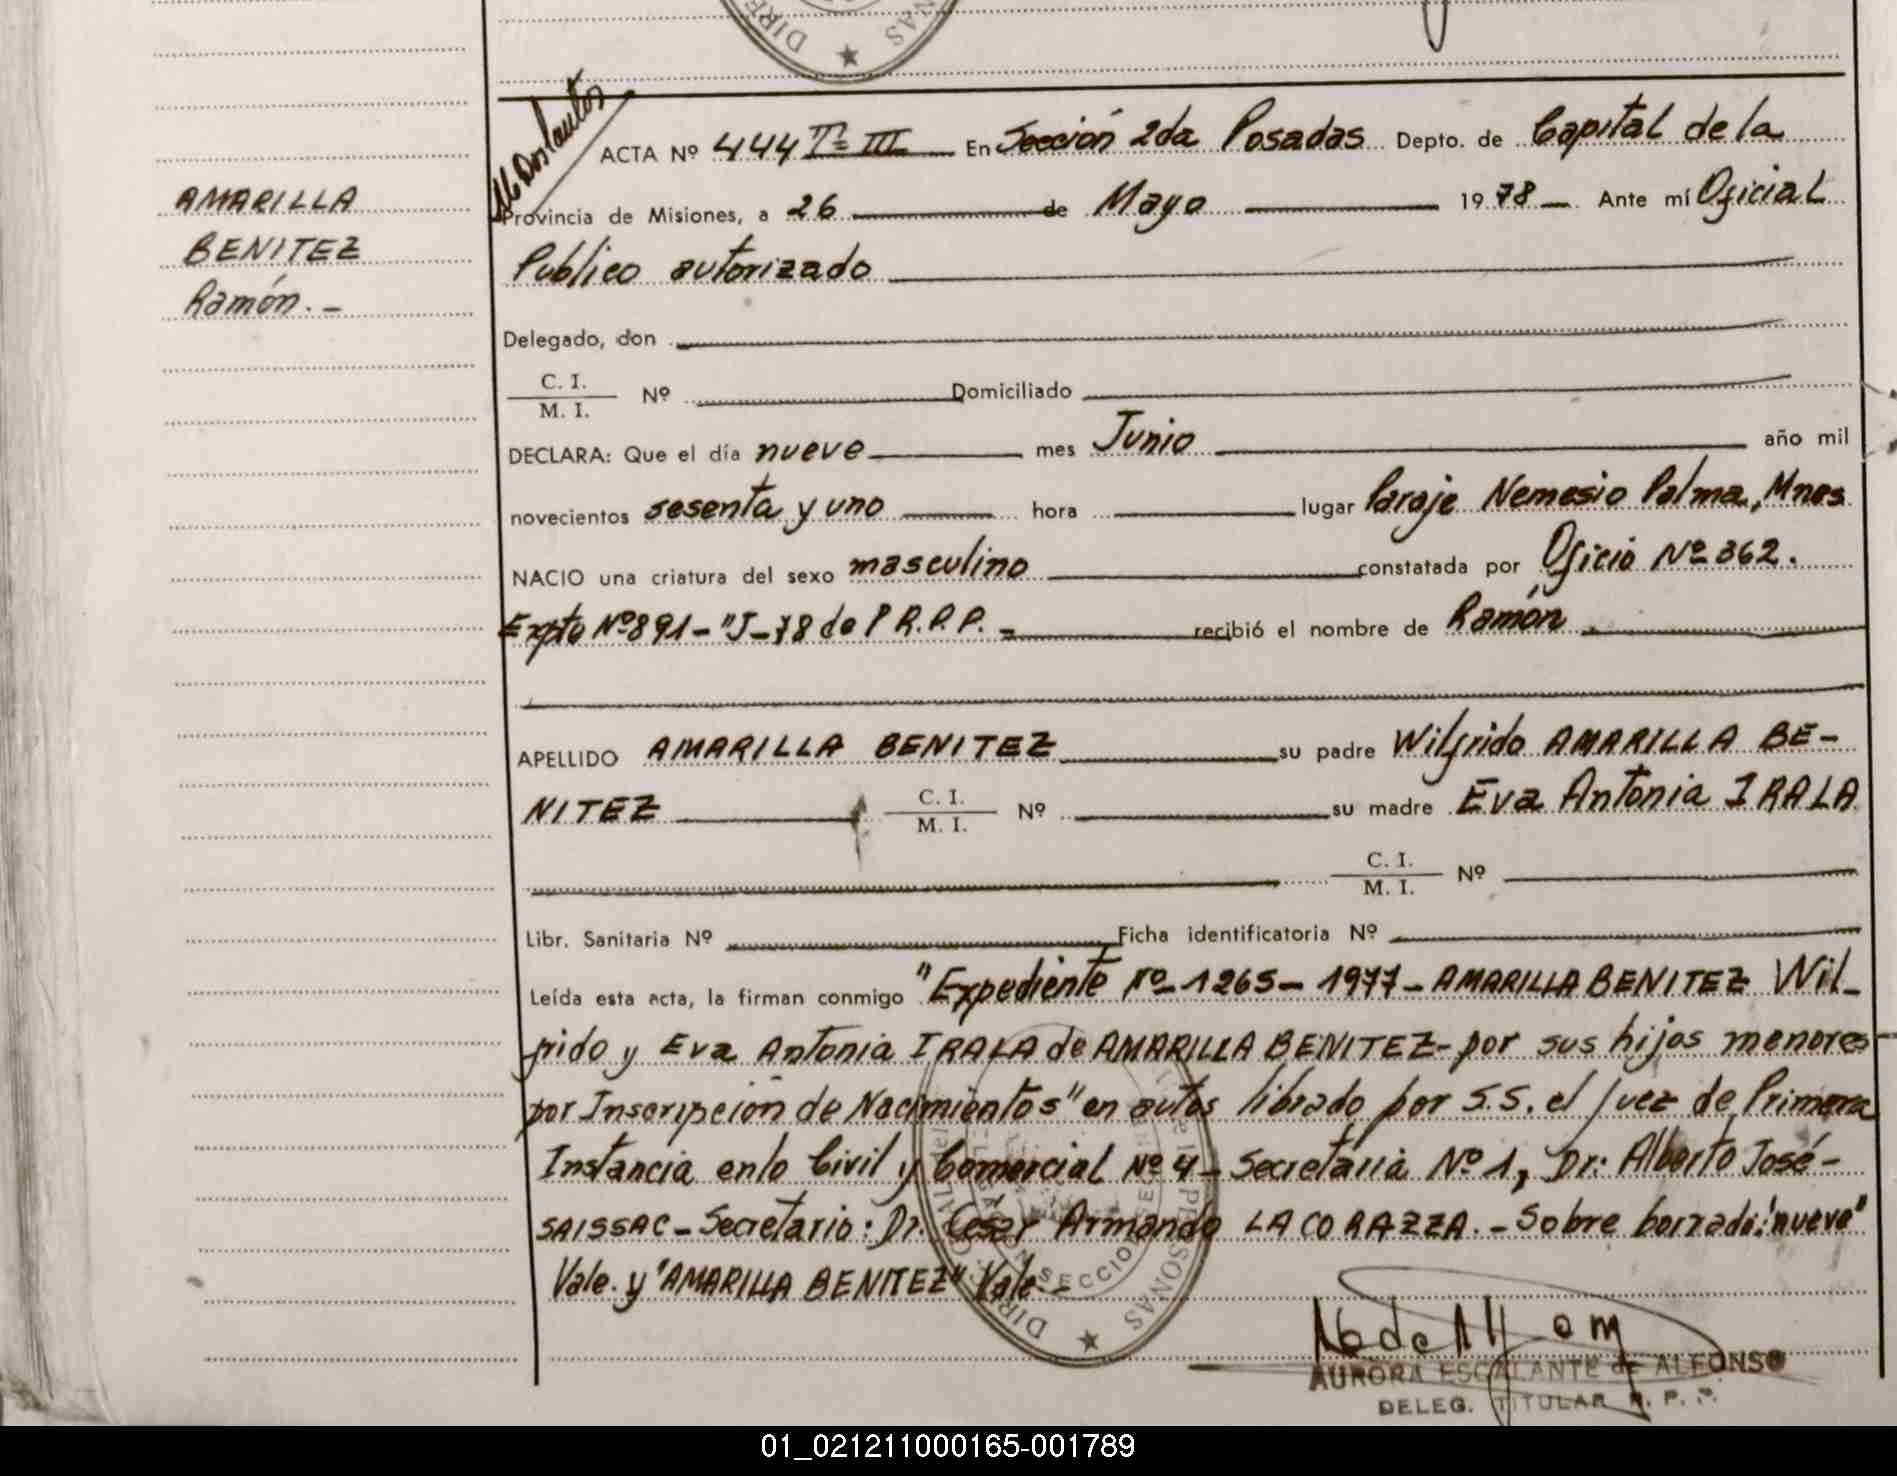 DIRE NAS
ACTA Nº 444 Tº III En Sección 2da Posadas Depto. de Capital de la
AMARILLA
Provincia de Misiones, a 26 de Mayo 1978 Ante mí Oficial
BENITEZ
Publico autorizado
Ramón.-
Delegado, don
C. I.
M. I. Nº Domiciliado
DECLARA: Que el día nueve mes Junio año mil
novecientos sesenta y uno hora lugar Paraje Nemesio Palma, Mnes
NACIO una criatura del sexo masculino constatada por Oficio Nº 362.
Expte Nº 891-"J-78 de P R.P.P. - recibió el nombre de Ramón
APELLIDO AMARILLA BENITEZ su padre Wilfrido AMARILLA BE-
NITEZ C. I. M. I. Nº su madre Eva Antonia IRALA
C. I.
M. I. Nº
Libr. Sanitaria Nº Ficha identificatoria Nº
Leída esta acta, la firman conmigo "Expediente Nº-1265-1977-AMARILLA BENITEZ Wil-
frido y Eva Antonia IRALA de AMARILLA BENITEZ-por sus hijos menores
por Inscripción de Nacimientos" en autos librado por S.S. el Juez de Primera
Instancia en lo Civil y Comercial Nº 4- Secretaria Nº 1, Dr: Alberto José-
SAISSAC-Secretario: Dr. Cesar Armando LACORAZZA.-Sobre borrado:"nueve"
Vale. y "AMARILLA BENITEZ" Vale.-
AURORA ESCALANTE de ALFONSO
DELEG. TITULAR R. P. P.
01_021211000165-001789